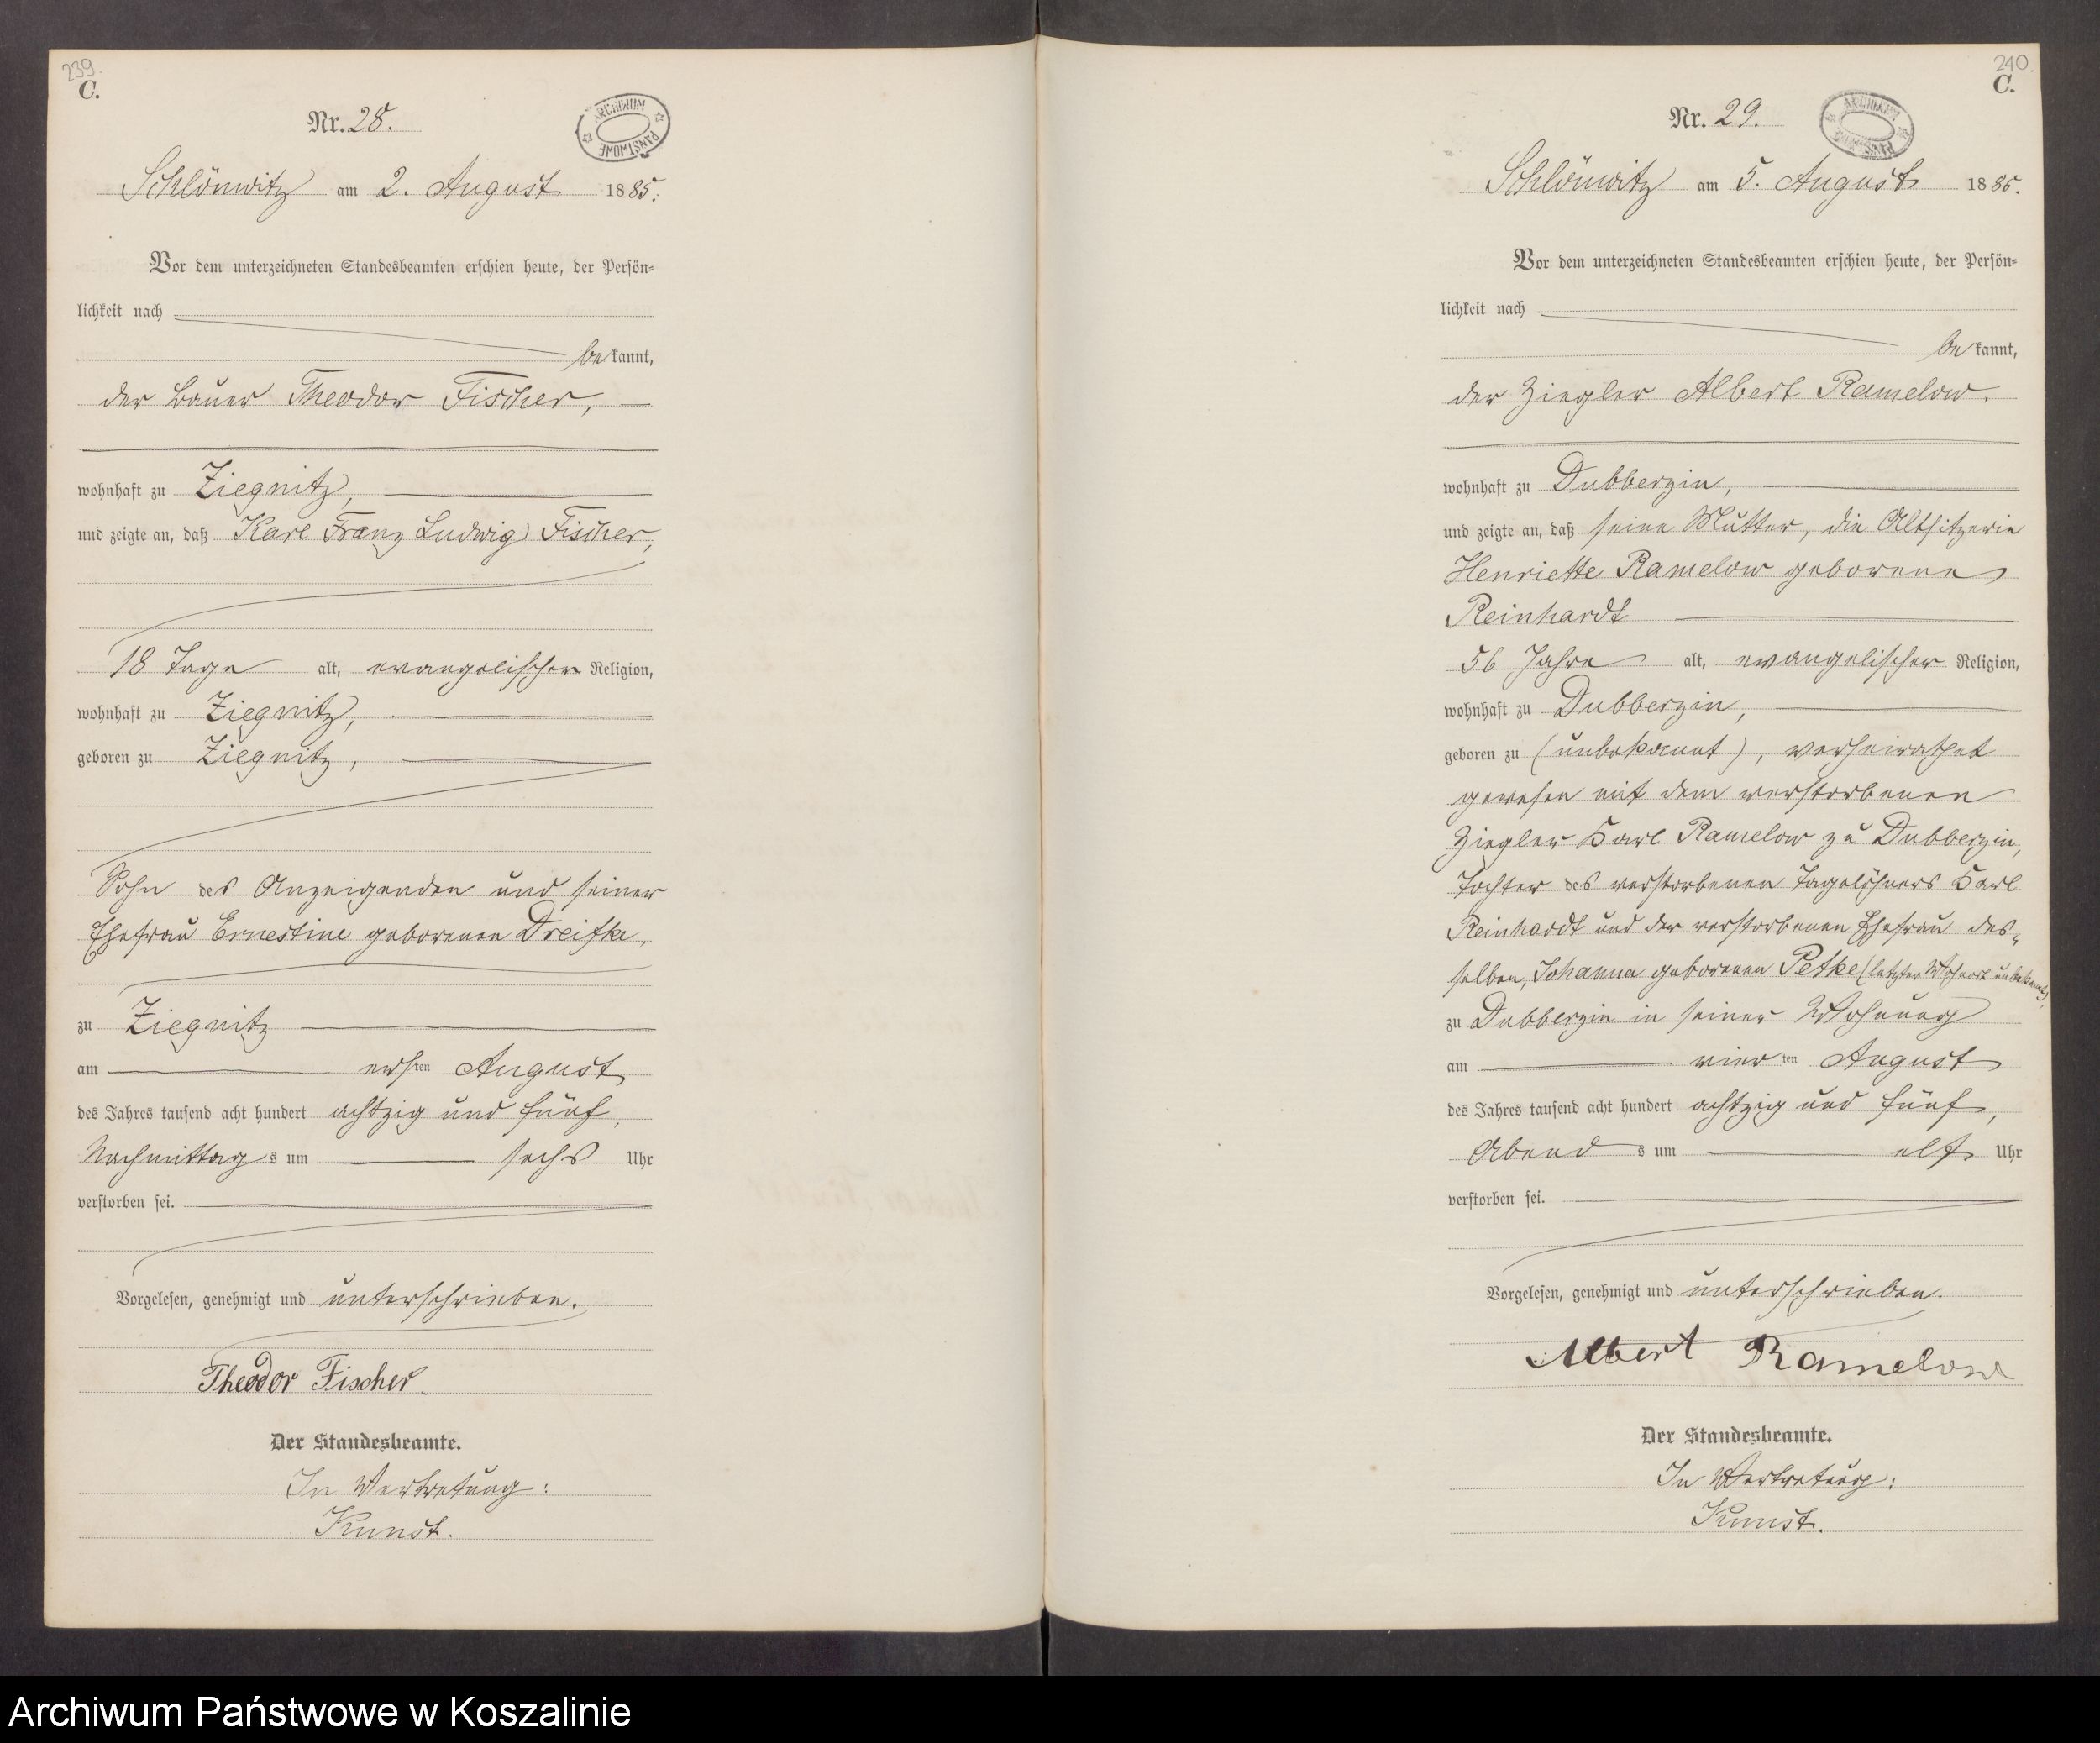 239.
C.
Nr. 28.
ARCHIWUM PAŃSTWOWE
Schlönwitz am 2. August 1885.
Vor dem unterzeichneten Standesbeamten erschien heute, der Persön=
lichkeit nach
bekannt,
der Bauer Theodor Fischer,
wohnhaft zu Ziegnitz,
und zeigte an, daß Karl Franz Ludwig Fischer,
18 Tage alt, evangelischer Religion,
wohnhaft zu Ziegnitz,
geboren zu Ziegnitz,
Sohn des Anzeigenden und seiner
Ehefrau Ernestine geborenen Dreifke,
zu Ziegnitz
am ersten August
des Jahres tausend acht hundert achtzig und fünf,
Nachmittags um sechs Uhr
verstorben sei.
Vorgelesen, genehmigt und unterschrieben.
Theodor Fischer.
Der Standesbeamte.
In Vertretung:
Kunst.
240.
C.
Nr. 29.
ARCHIWUM PAŃSTWOWE
Schlönwitz am 5. August 1885.
Vor dem unterzeichneten Standesbeamten erschien heute, der Persön=
lichkeit nach
bekannt,
der Ziegler Albert Ramelow.
wohnhaft zu Dubberzin,
und zeigte an, daß seine Mutter, die Altsitzerin
Henriette Ramelow geborene
Reinhardt
56 Jahre alt, evangelischer Religion,
wohnhaft zu Dubberzin,
geboren zu (unbekannt), verheirathet
gewesen mit dem verstorbenen
Ziegler Karl Ramelow zu Dubberzin,
Tochter des verstorbenen Tagelöhners Karl
Reinhardt und der verstorbenen Ehefrau des=
selben, Johanna geborenen Petke (letzter Wohnort unbekannt)
zu Dubberzin in seiner Wohnung
am vierten August
des Jahres tausend acht hundert achtzig und fünf,
Abends um elf Uhr
verstorben sei.
Vorgelesen, genehmigt und unterschrieben.
Albert Ramelow
Der Standesbeamte.
In Vertretung:
Kunst.
Archiwum Państwowe w Koszalinie